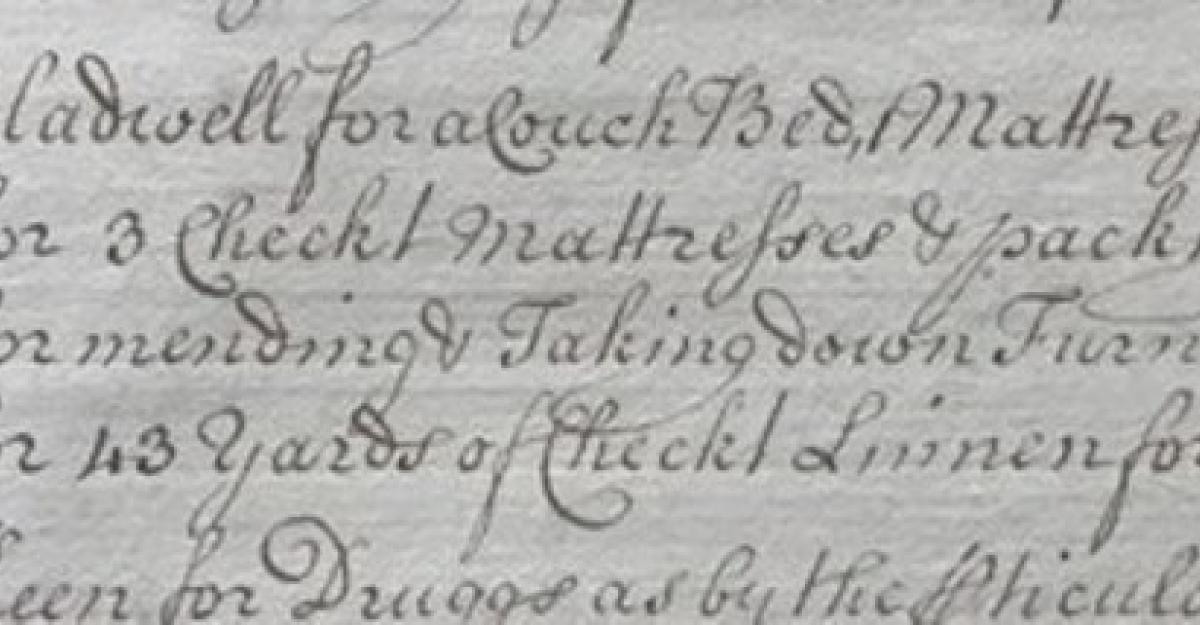 ladwell for a Couch Bed, Mattres
or 3 Checkt Mattresses & pack
or mending & Taking down Furn
or 43 Yards of Checkt Linnen for
een for Druggs as by the pticul